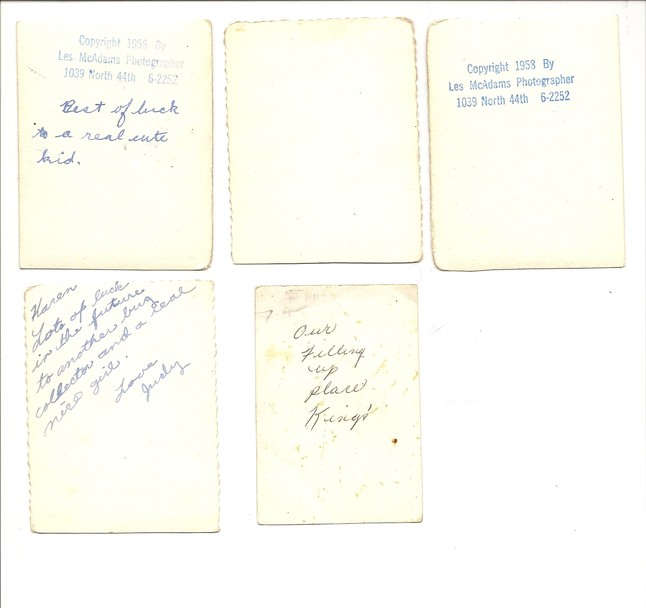 Copyright 1958 By
Les McAdams Photographer
1039 North 44th 6-2252
Best of luck
to a real cute
kid.
Copyright 1958 By
Les McAdams Photographer
1039 North 44th 6-2252
Karen
Lots of luck
in the future
to another bug
collector and a real
nice girl.
Love
Judy
Our
Filling
up
place
King's